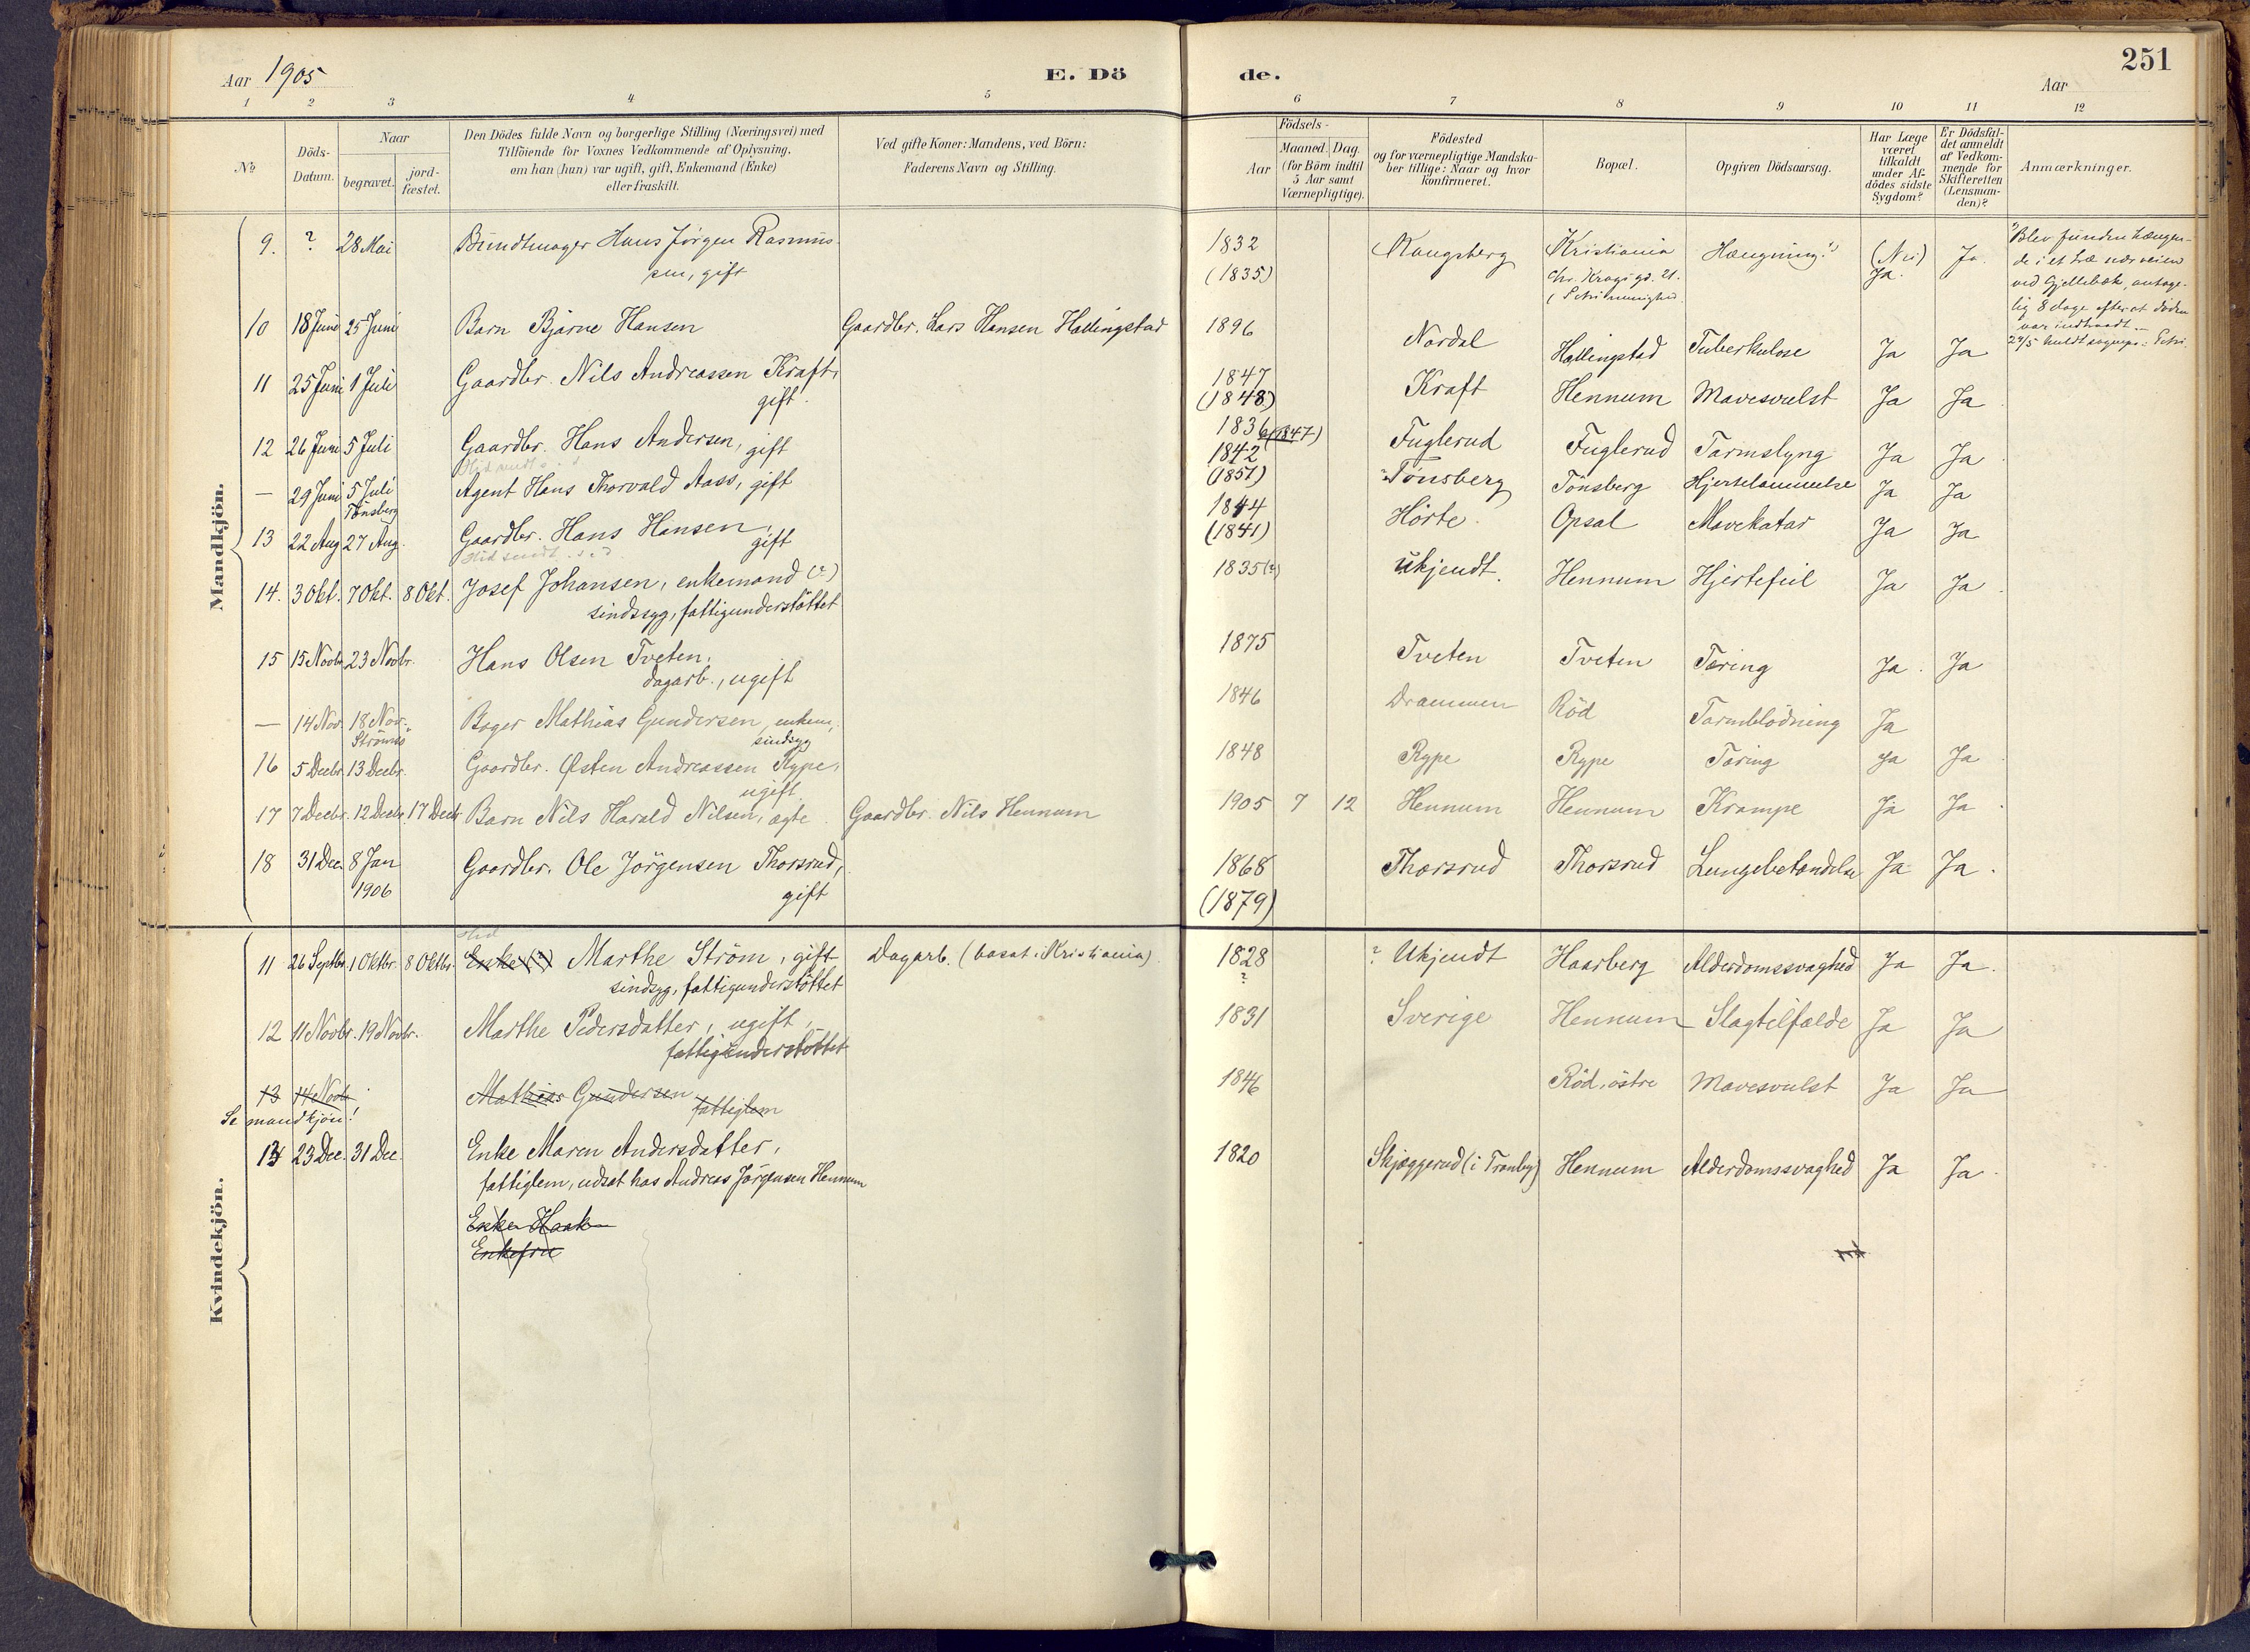 Aar 1905
E. Dö
de.
Aar
251
1 2 3 4 5 6 7 8 9 10 11 12
№
Döds-Datum.
Naar
begravet.
jord-fæstet.
Den Dödes fulde Navn og borgerlige Stilling (Næringsvei) med
Tilföiende for Voxnes Vedkommende af Oplysning,
om han (hun) var ugift, gift, Enkemand (Enke)
eller fraskilt.
Ved gifte Koner: Mandens, ved Börn:
Faderens Navn og Stilling.
Födsels-
Aar
Maaned. Dag.
(for Börn indtil
5 Aar samt
Værnepligtige).
Födested
og for værnepligtige Mandska-
ber tillige: Naar og hvor
konfirmeret.
Bopæl.
Opgiven Dödsaarsag.
Har Læge
været
tilkaldt
under Af-
dödes sidste
Sygdom?
Er Dödsfal-
det anmeldt
af Vedkom-
mende for
Skifteretten
(Lensman-
den)?
Anmærkninger.
Mandkjön.
9. ? 28 Mai Bundtmager Hans Jörgen Rasmus- 1832 Kongsberg Kristiania Hængning!) (Nei) Ja
sen, gift (1835) Chr. Krogs gd. 21. Ja.
(Petri menighed.
Blev funden hængen-
de i et træ nær veien
ved Gjellebæk, antage-
lig 8 dage efter at döden
var indtraadt.—
10 18 Juni 25 Juni Barn Bjarne Hansen Gaardbr. Lars Hansen Hallingstad 1896 Nordal Hallingstad Tuberkulose Ja Ja
11 25 Juni 1 Juli Gaardbr. Nils Andreassen Kraft, 1847 Kraft Hennum Mavesvulst Ja Ja
gift. (1848)
12 26 Juni 5 Juli Gaardbr. Hans Andersen, gift 1836 (1847) Fuglerud Fuglerud Tarmslyng Ja Ja
— 29 Juni 5 Juli Agent Hans Thorvald Aass, gift 1842 Tönsberg Tönsberg Hjertelammelse Ja Ja
Tönsberg (1851)
13 22 Aug 27 Aug. Gaardbr. Hans Hansen, 1844 Hörte. Opsal Mavekatar Ja Ja
gift (1841)
14. 3 Okt. 7 Okt. 8 Okt. Josef Johansen, enkemand (?) 1835(?) ukjendt. Hennum Hjertefeil Ja Ja
sindssyg, fattigunderstöttet
15 15 Novbr. 23 Novbr. Hans Olsen Tveten, 1875 Tveten Tveten Tæring Ja. Ja
dagarb., ugift
— 14 Nov. 18 Nov. Bager Mathias Gundersen, enkem, 1846 Drammen Röd Tarmblödning Ja
Strömsö sindsyg
16 5 Decbr. 13 Decbr. Gaardbr. Østen Andreassen Rype, 1848 Rype Rype Tæring Ja Ja
ugift.
17 7 Decbr. 12 Decbr. 17 Decbr. Barn Nils Harald Nilsen, ægte. Gaardbr. Nils Hennum 1905 7 12 Hennum Hennum Krampe Ja Ja
18 31 Dec. 8 Jan Gaardbr. Ole Jörgensen Thorsrud, 1868 Thorsrud Thorsrud Lungebetændelse Ja Ja.
1906 gift (1879)
Kvindekjön.
11 26 Septbr. 1 Oktbr. 8 Oktbr. Enke (?) Marthe Ström, gift Dagarb. (bosat i Kristiania) 1828 ? Ukjendt Haarberg Alderdomssvaghed Ja Ja.
sindsyg, fattigunderstöttet ?
12 11 Novbr. 19 Novbr. Marthe Pedersdatter, ugift, 1831 Sverige Hennum Slagtilfælde Ja Ja
fattigunderstöttet
13 14 Novbr. Mathias Gundersen 1846 Röd, östre Mavesvulst Ja Ja
fattiglem
Se mandkjön!
13 23 Dec. 31 Dec. Enke Maren Andersdatter, 1820 Skjæggerud (i Tranby) Hennum Alderdomssvaghed Ja Ja
fattiglem, udsat hos Andreas Jörgensen Hennum
Enke Haak
Enkefru